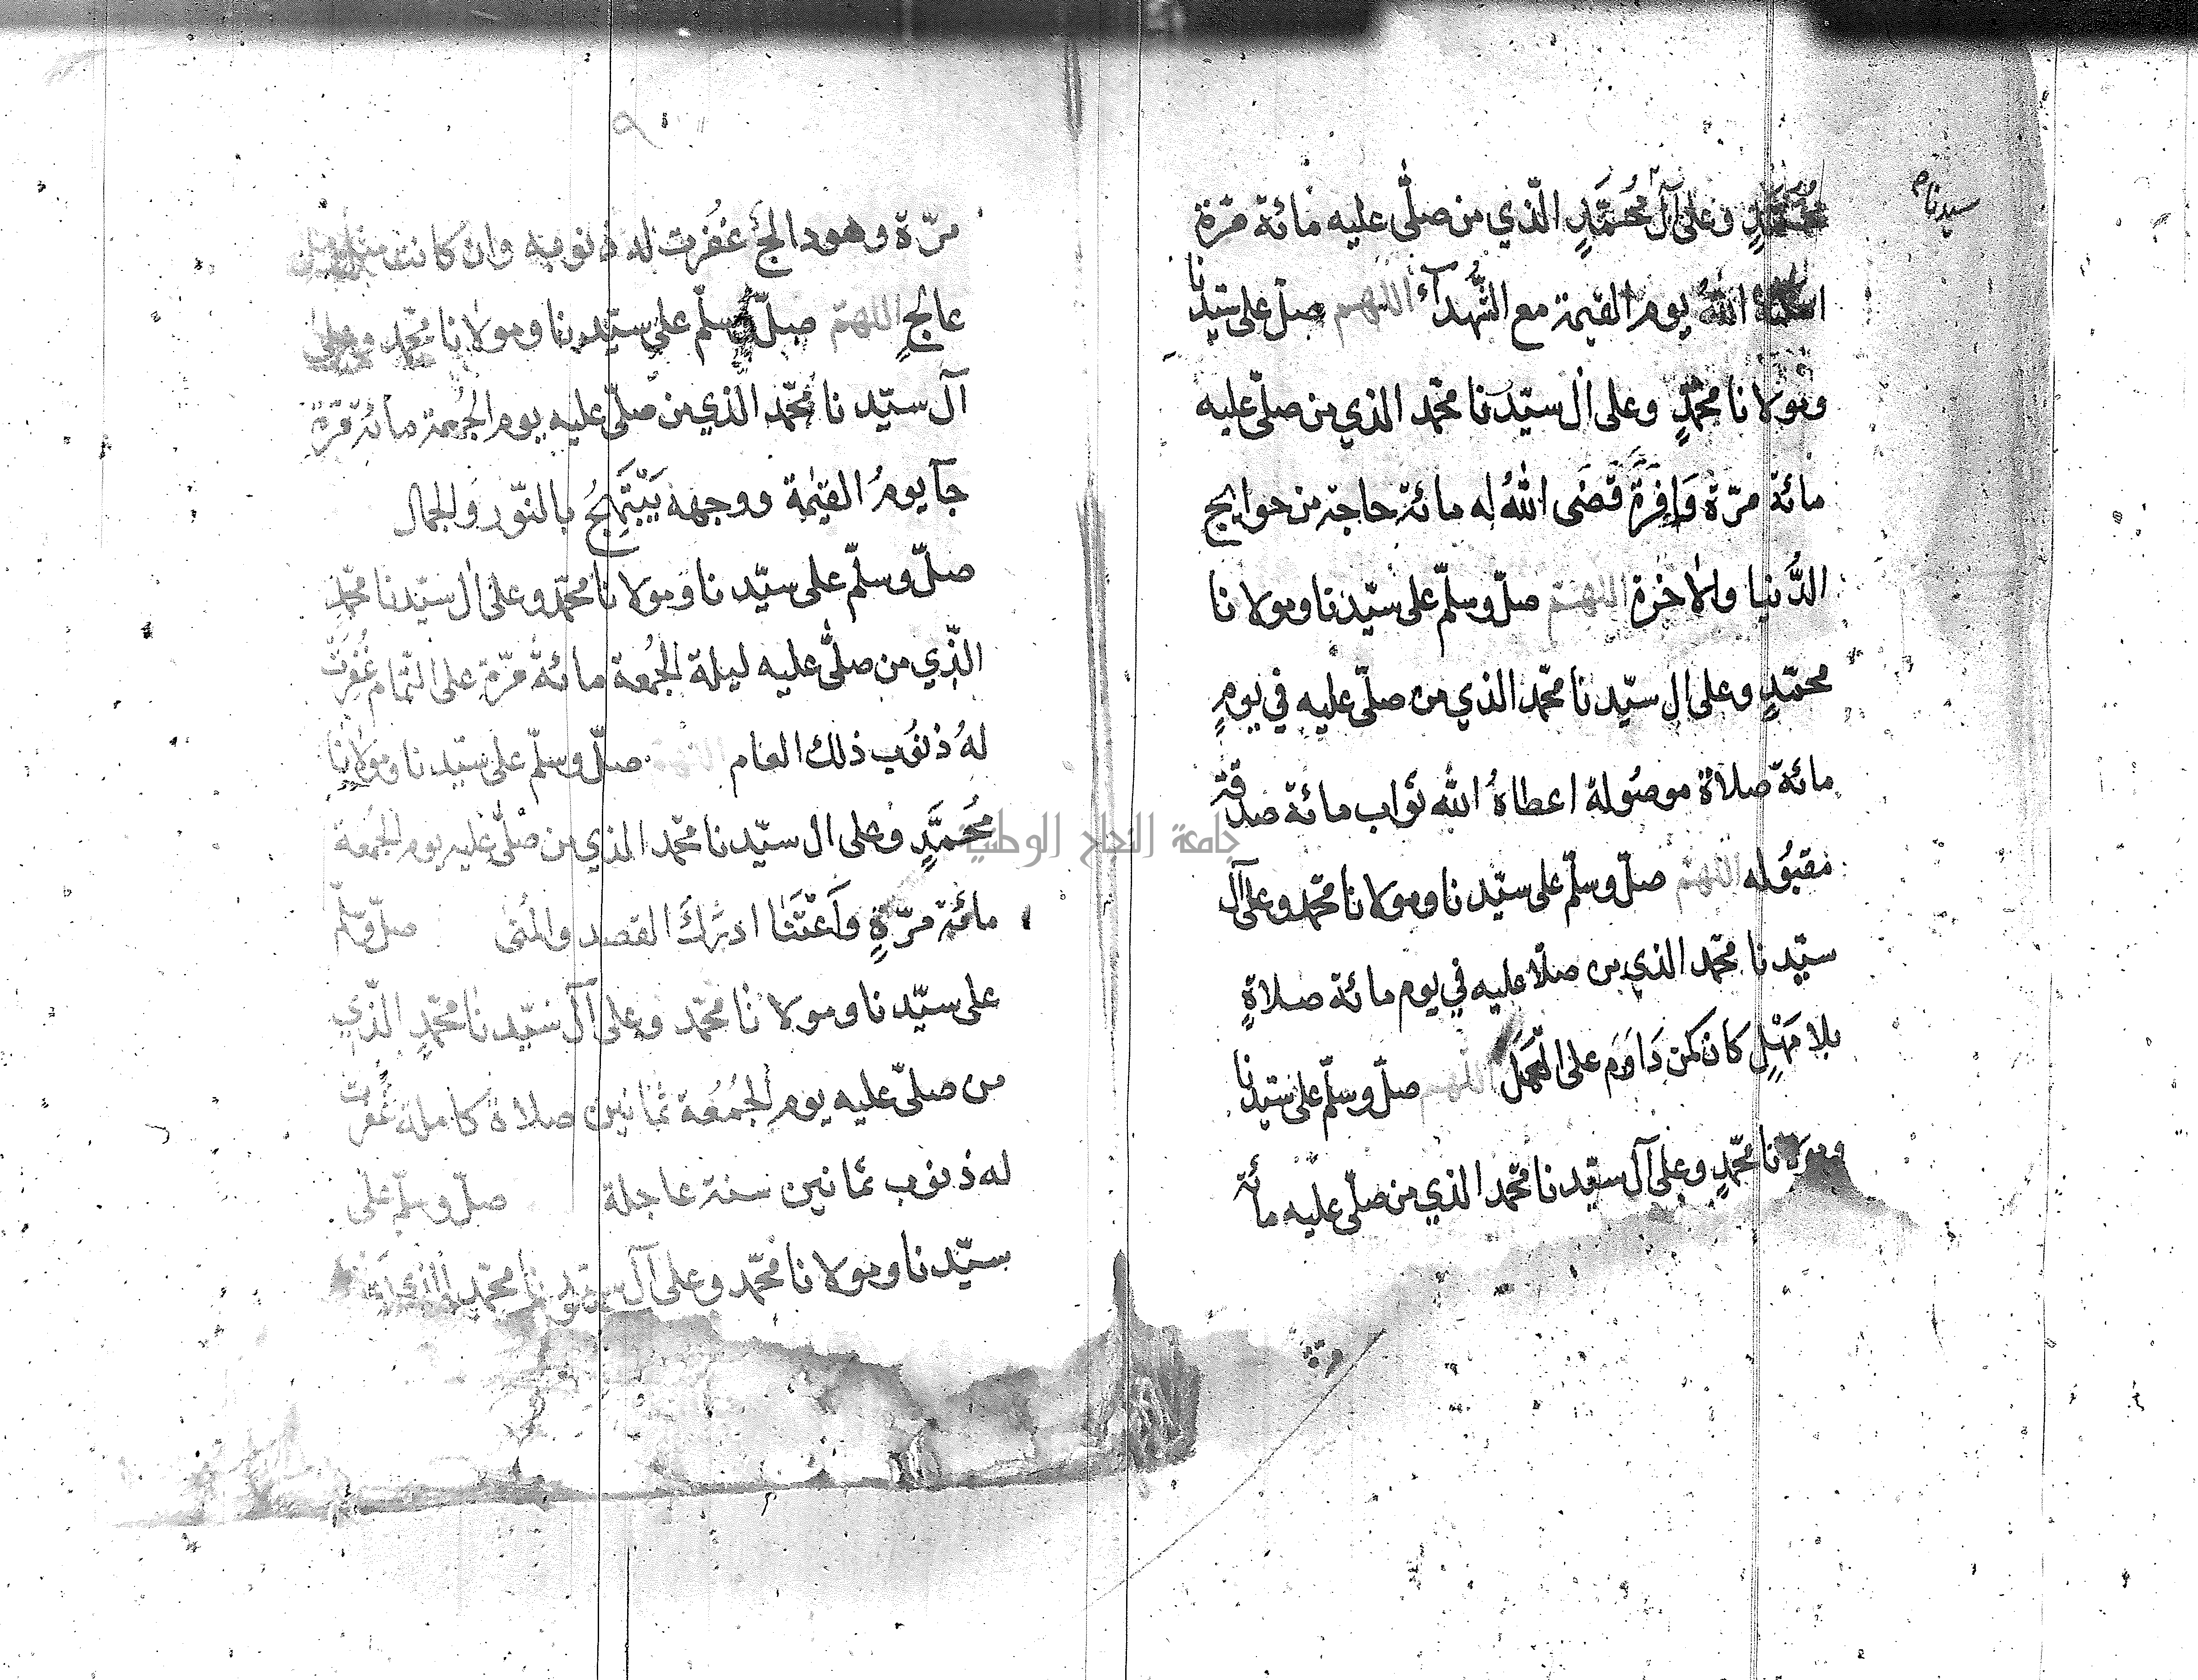 سيدنا م
مُحَمَّدٍ وعلى آل مُحَمَّدٍ الّذي من صلّى عليه مائة مّرة
الله يوم القيمة مع الشُّهدآء اللهم صلّ على سيّدنا
ومولانا محمّدٍ وعلى ال سيّدنا محمّد الذي من صلّى عليه
مائة مرّة وَافِرَةً قَضَى اللهُ له مائة حاجة من حوايج
الدُّنيا والاخرة اللهم صلّ وسلّم على سيّدنا ومولانا
محمّدٍ وعلى ال سيّدنا محمّد الذي من صلّى عليه في يومٍ
مائة صلاة موصُولة اعطاهُ الله ثواب مائة صدقة
مقبُوله اللهمّ صلّ وسلّم على سيّدنا ومولانا محمّد وعلى آل
سيّدنا محمّد الذي من صلّا عليه في يوم مائة صلاةٍ
بلا مَهْلٍ كان كمن دَاوَم على العَمَل اللهم صلّ وسلّم على سيّدنا
ومولانا محمّدٍ وعلى آل سيّدنا محمّد الذي من صلّى عليه مائة
مرة
٩
مرّة وهو دالجٌ غُفرت له ذنوبه وان كانت مثل رمل
عالجٍ اللهمّ صلّ وسلّم على سيّدنا ومولانا محمّد وعلى
آل سيّدنا محمّد الّذي من صلّى عليه يوم الجُمعة مائة مّرة
جآ يومُ القيٰمة ووجهه يَبْتَهِجُ بالنّور والجمال
صلّ وسلّم على سيّدنا ومولانا محمّد وعلى ال سيّدنا محمّدٍ
الذّي من صلّى عليه ليلة الجُمعة مائة مرّة على التمام غُفِرَت
لهُ ذنوب ذلك العام اللهم صلّ وسلّم على سيّدنا ومولانا
مُحمَّدٍ وعلى ال سيّدنا محمّد الذي من صلّى عليه يوم الجُمعة
مائة مرّةٍ واَعْتَنَا ادرَكَ القصد والمُنى صلّ وسلّم
على سيّدنا ومولانا محمّد وعلى آل سيّدنا محمّدٍ الّذي
من صلّى عليه يوم الجُمُعة ثمانين صلاة كاملة غُفرت
له ذنوب ثمانين سنة عاجلة صلّ وسلّم على
سيّدنا ومولانا محمّد وعلى آل سيّدنا محمّد الذي
جامعة النجاح الوطنية